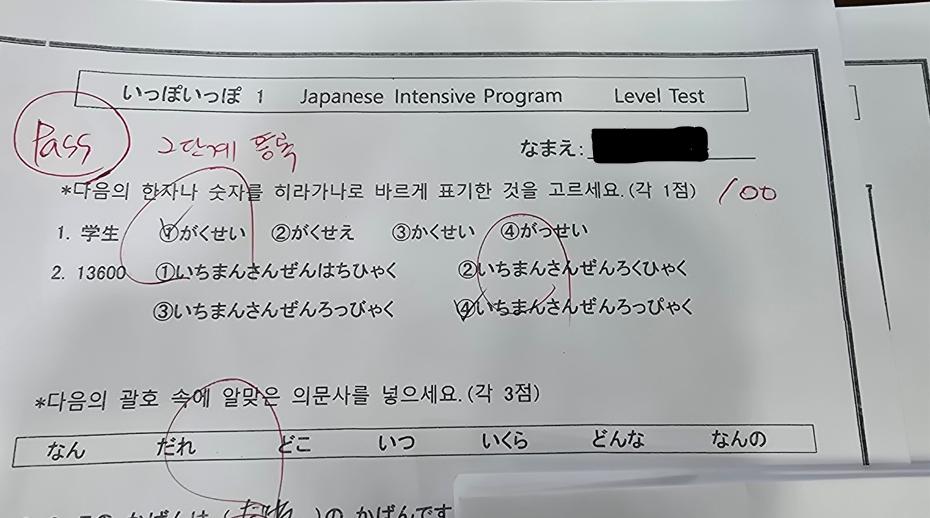 いっぽいっぽ 1 Japanese Intensive Program Level Test
Pass 2단계 등록 なまえ:
*다음의 한자나 숫자를 히라가나로 바르게 표기한 것을 고르세요.(각 1점) 100
1. 学生 ①がくせい ②がくせえ ③かくせい ④がっせい
2. 13600 ①いちまんさんぜんはちひゃく ②いちまんさんぜんろくひゃく
③いちまんさんぜんろっびゃく ④いちまんさんぜんろっぴゃく
*다음의 괄호 속에 알맞은 의문사를 넣으세요.(각 3점)
なん だれ どこ いつ いくら どんな なんの
この かばんは (だれ )の かばんです